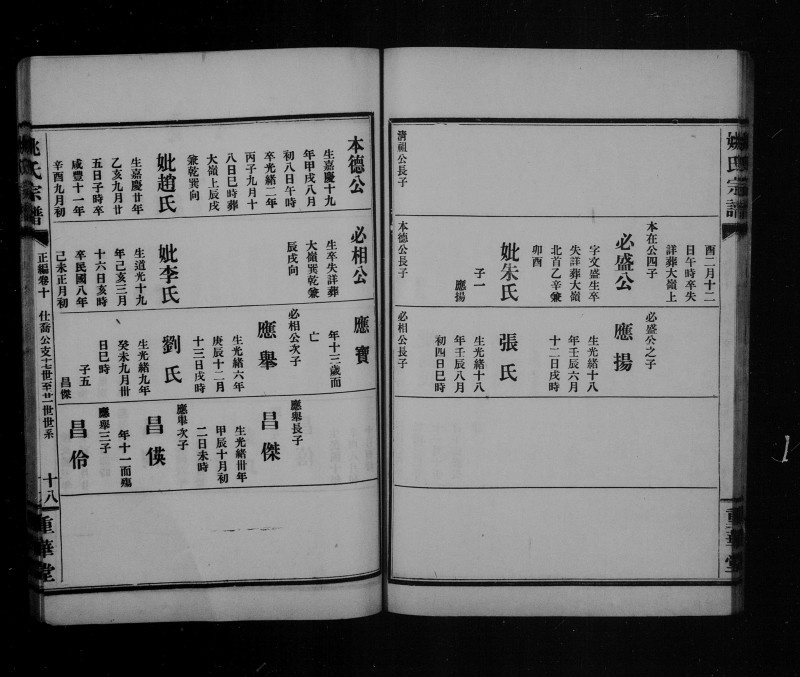 姚氏宗譜
重華堂
酉二月十二
日午時卒失
詳葬大嶺上
清祖公長子
本在公四子
必盛公
字文盛生卒
失詳葬大嶺
北首乙辛兼
卯酉
妣朱氏
子一
應揚
本德公長子
必盛公之子
應揚
生光緒十八
年壬辰六月
十二日戌時
張氏
生光緒十八
年壬辰八月
初四日巳時
必相公長子
本德公
生嘉慶十九
年甲戌八月
初八日午時
卒光緒二年
丙子九月十
八日巳時葬
大嶺上辰戌
兼乾巽向
妣趙氏
生嘉慶廿年
乙亥九月廿
五日子時卒
咸豐十一年
辛酉九月初
必相公
生卒失詳葬
大嶺巽乾兼
辰戌向
妣李氏
生道光十九
年己亥三月
十六日亥時
卒民國八年
己未正月初
應寶
年十三歲而
亡
必相公次子
應舉
生光緒六年
庚辰十二月
十三日戌時
劉氏
生光緒九年
癸未九月廿
日巳時
子五
昌傑
應舉長子
昌傑
生光緒卅年
甲辰十月初
二日未時
應舉次子
昌偀
年十一而殤
應舉三子
昌伶
姚氏宗譜
正編卷十
仕喬公支十七世至廿一世世系
十八
重華堂